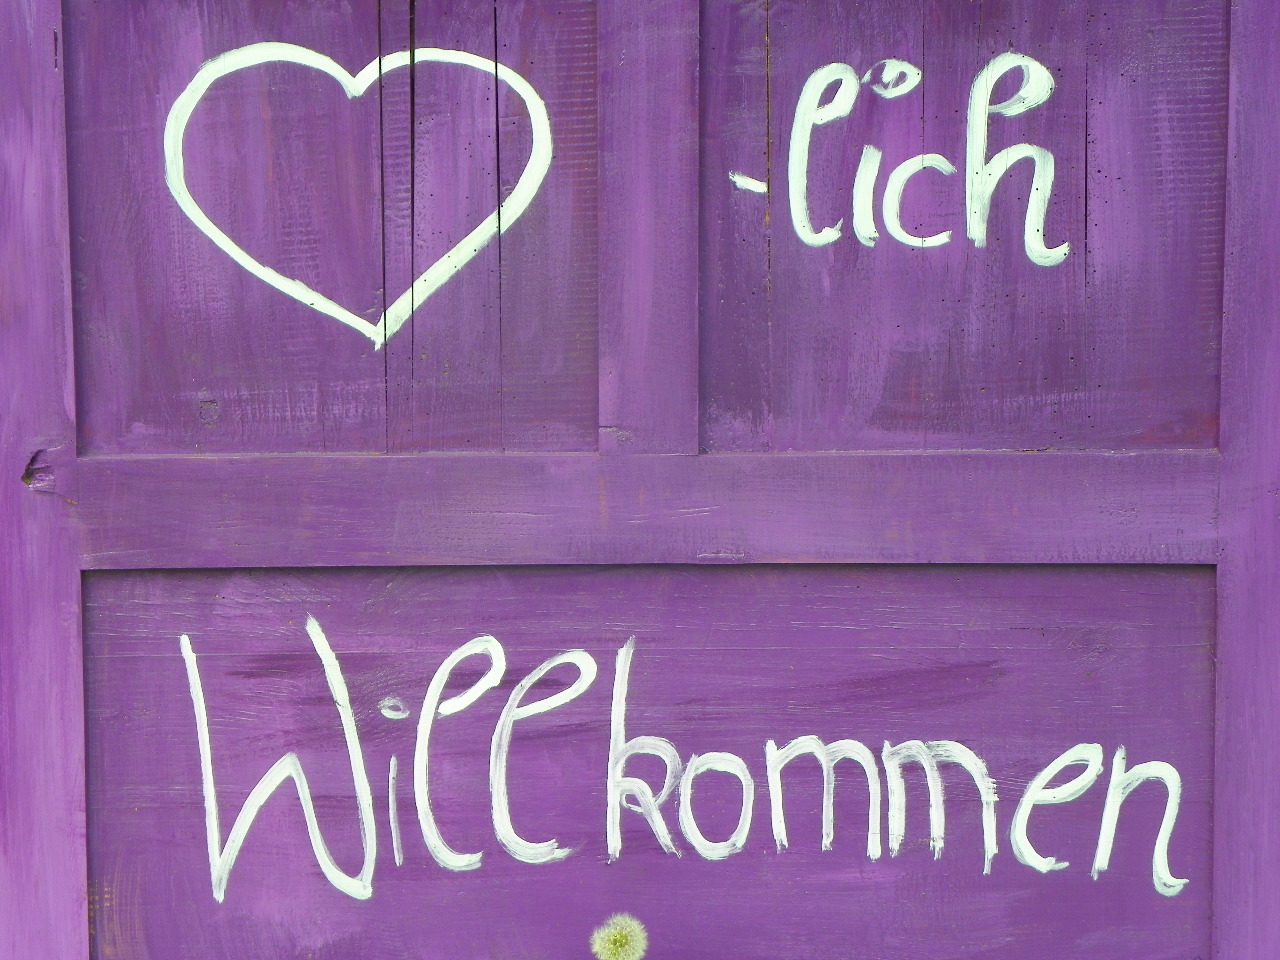 -lich
Willkommen